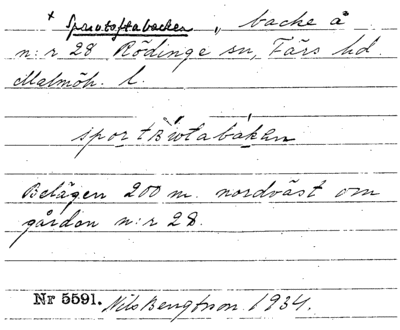 + Sparetoftabacken „ backe å
n:r 28 Rödinge sn, Färs hd.
Malmöh. l.
Belägen 200 m. nordväst om
gården n:r 28.
Nr 5591. Nils Bengtson 1934.